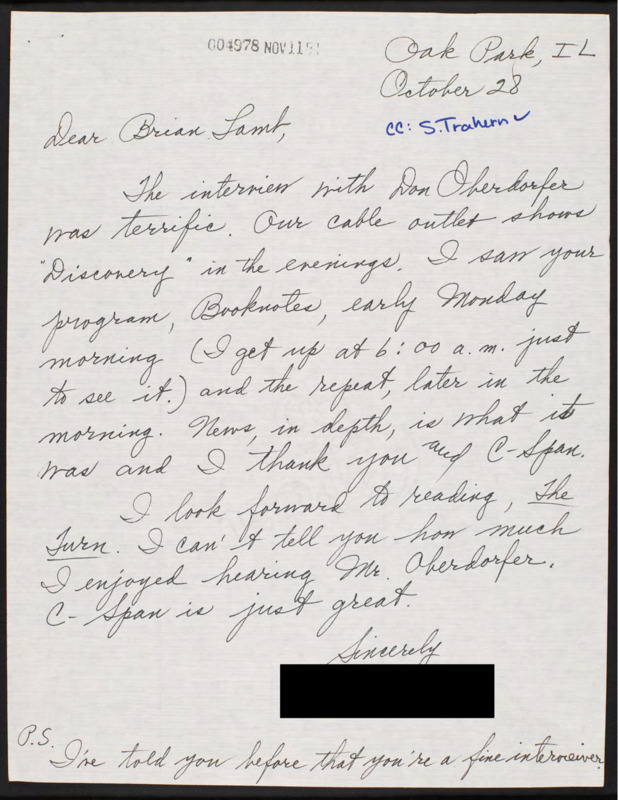 004978 NOV11
Oak Park, IL
October 28
cc: S. Trahern ✓
Dear Brian Lamb,
The interview with Don Oberdorfer
was terrific. Our cable outlet shows
"Discovery" in the evenings. I saw your
program, Booknotes, early Monday
morning (I get up at 6:00 a.m. just
to see it.) and the repeat, later in the
morning. News, in depth, is what it
was and I thank you and C-Span.
I look forward to reading, The
Turn. I can't tell you how much
I enjoyed hearing Mr. Oberdorfer.
C-Span is just great.
Sincerely
P.S.
I've told you before that you're a fine interviewer.